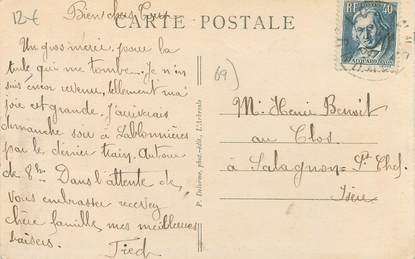 12€
Bien chers Tous
CARTE POSTALE
Un gros merci pour la
tuile qui me tombe. Je n'en
suis encore revenu, tellement ma
joie est grande. J'arriverais
dimanche soir à Sablonnières
par le dernier train. Autour
de 8h. Dans l'attente de
vous embrasser recevez
chère famille, mes meilleurs
baisers.
Fred
P. Delorme, phot.-édit., L'Arbresle
(69)
RF 40
JACQUARD
Mr Henri Benoit
au Clos
à Salagnon - St Chef
Isère